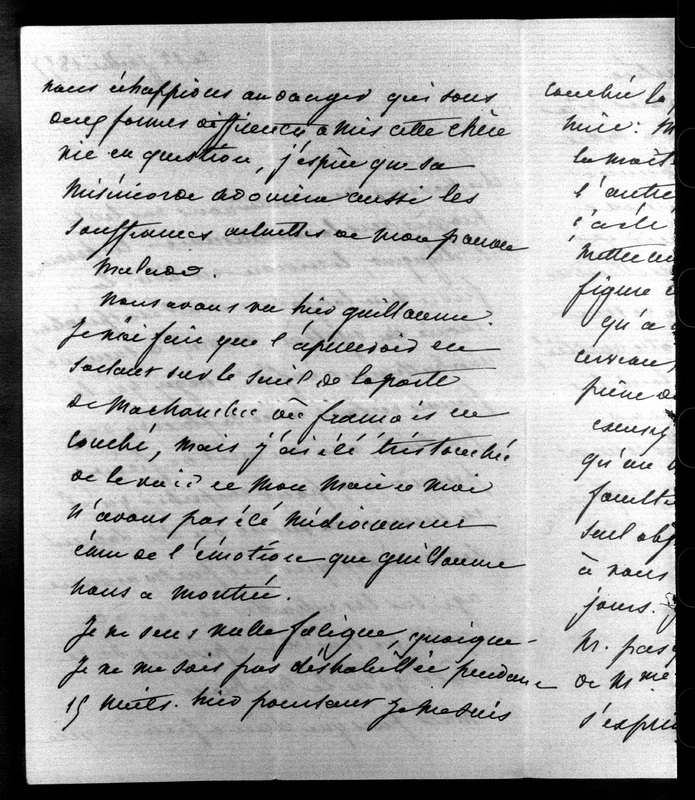 nous échappions au danger qui sous
deux formes différentes a mis cette chère
vie en question, j'espère que sa
miséricorde adoucira aussi les
souffrances actuelles de mon pauvre
malade.
nous avons vu hier guillaume.
je n'ai fait que l'apercevoir en
sortant sur le seuil de la porte
de ma chambre où françois est
couché, mais j'ai été très touchée
de le voir et mon mari et moi
n'avons pas été médiocrement
émus de l'émotion que guillaume
nous a montré.
Je ne sens nulle fatigue, quoique
je ne me sois pas déshabillée pendant
15 nuits. hier pourtant je me suis
couchée la
l'autre
figure
qu'à
cerveau
qu'un
seul
à nous
jours.
M. pas
de Mme
s'expri